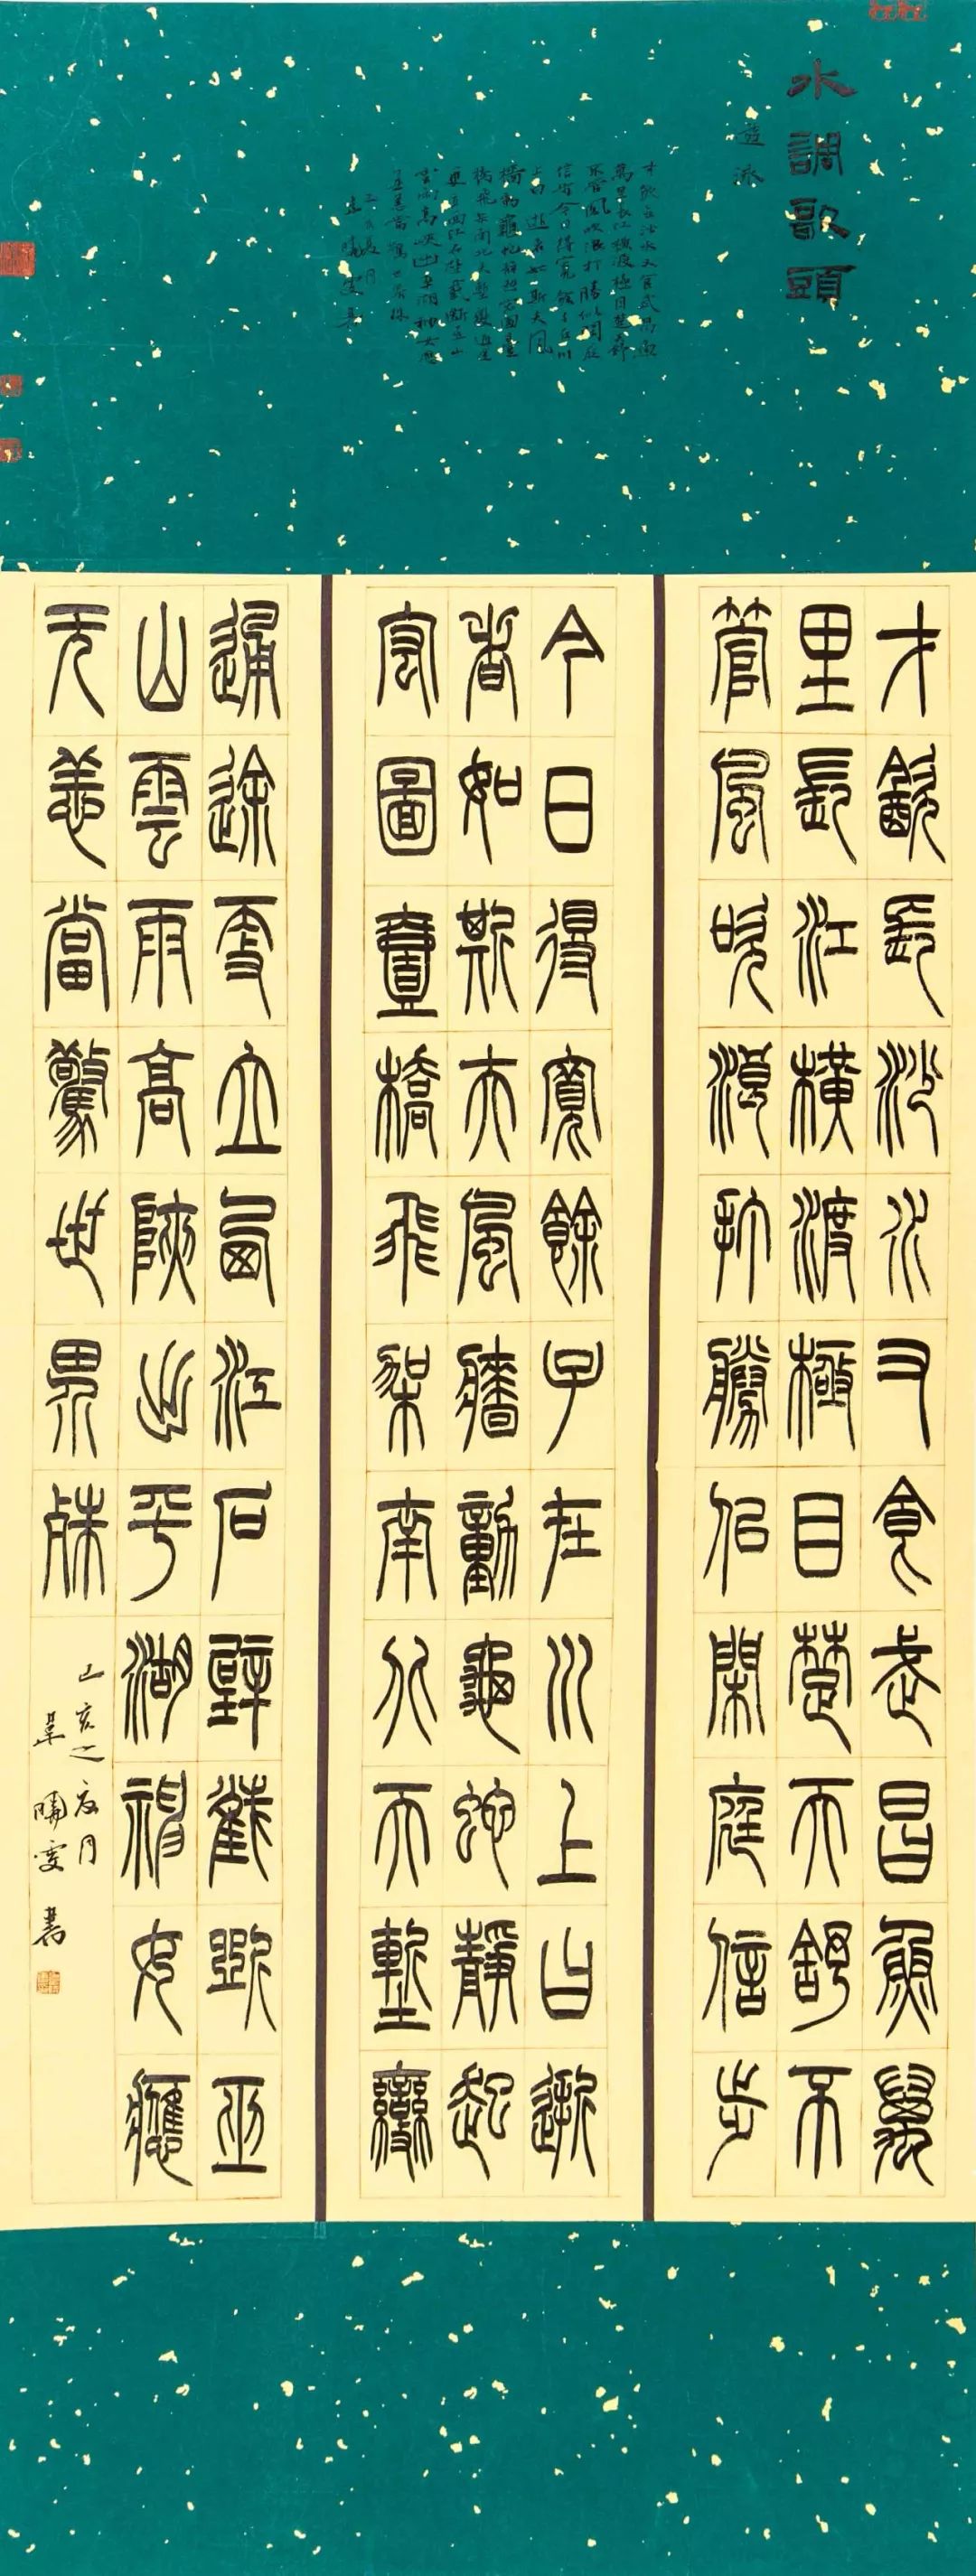 水調歌頭
遊泳
才飲長沙水又食武昌魚
萬里長江橫渡極目楚天舒
不管風吹浪打勝似閒庭
信步今日得寬餘子在川
上曰逝者如斯夫風
檣動龜蛇靜起宏圖一
橋飛架南北天塹變通途
更立西江石壁截斷巫山
雲雨高峽出平湖神女應
無恙當驚世界殊
己亥夏月
韋曉雯書
才飲長沙水又食武昌魚萬
里長江橫渡極目楚天舒不
管風吹浪打勝似閒庭信步
今日得寬餘子在川上曰逝
者如斯夫風檣動龜蛇靜起
宏圖壹橋飛架南北天塹變
通途更立西江石壁截斷巫
山雲雨高峽出平湖神女應
无恙當驚世界殊
己亥之夏月
韋曉雯書